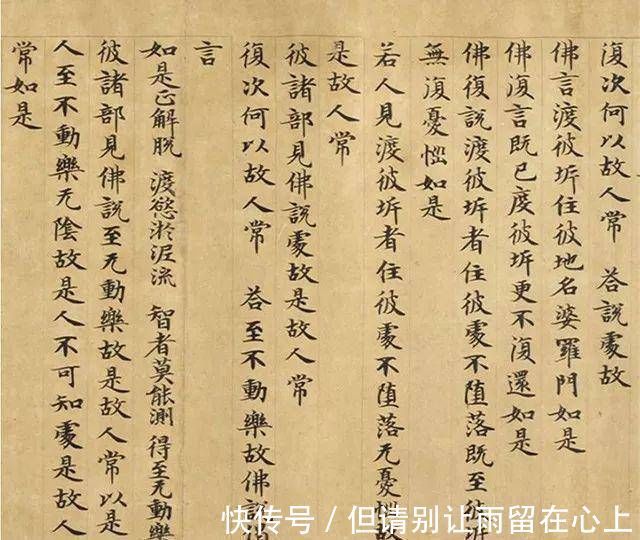 復次何以故人常 荅說處故
佛言渡彼坼住彼地名婆羅門如是
佛復言既已度彼坼更不復還如是
佛復說渡彼坼者住彼處不墮落既至彼坼
無復憂惱如是
若人見渡彼坼者住彼處不墮落无憂惱故
是故人常
彼諸部見佛說處故是故人常
復次何以故人常 荅至不動樂故佛說
言
如是正解脱 渡慾淤泥流 智者莫能測 得至无動樂
彼諸部見佛說至无動樂故是故人常以是
人至不動樂无陰故是人不可知處是故人
常如是
快传号 / 但请别让雨留在心上